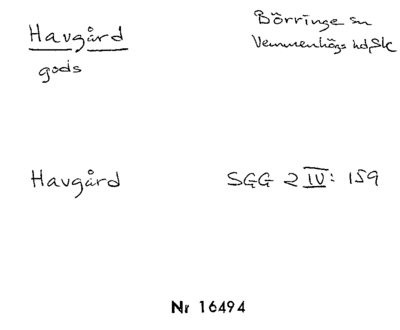 Havgård
Börringe sn
gods
Vemmenhögs hd, Sk
Havgård
SGG 2 IV: 159
Nr 16494